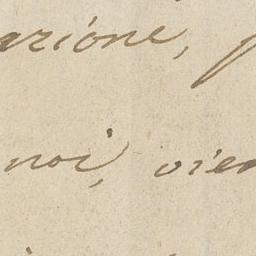 azione,
noi, vien